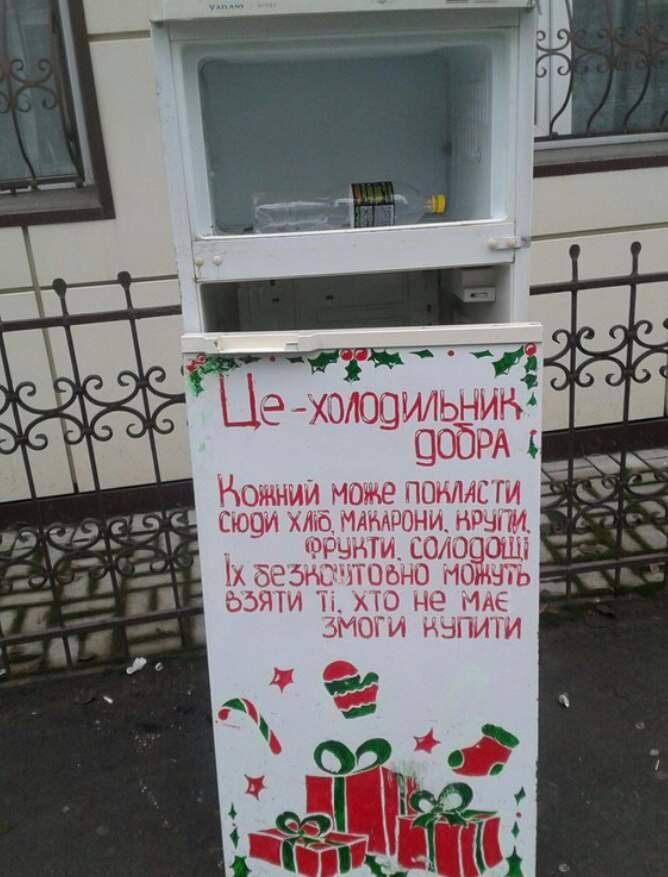 ATLANT
Це-холодильник
добра
Кожний може покласти
сюди хліб, макарони, крупи,
фрукти, солодощі
Їх безкоштовно можуть
взяти ті, хто не має
змоги купити